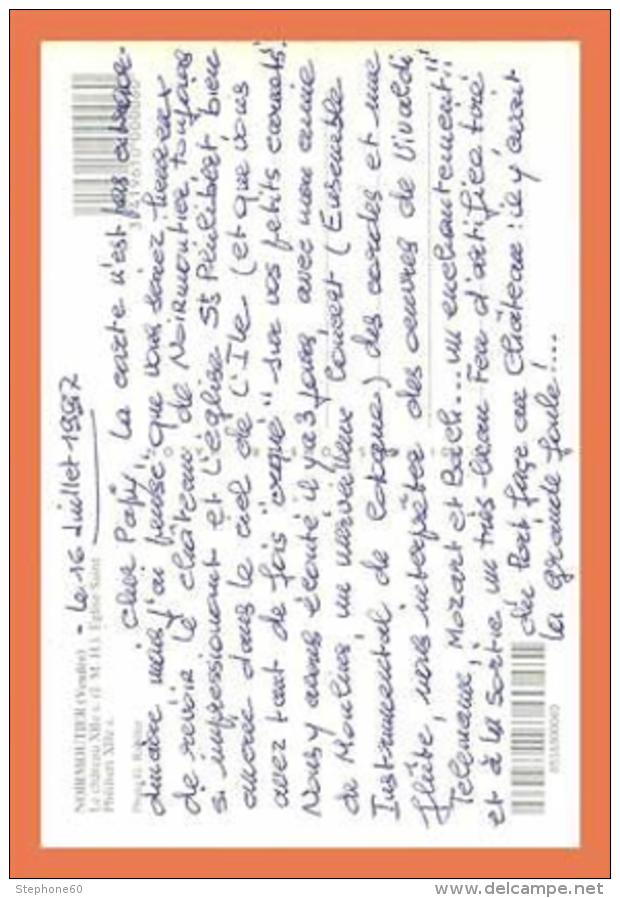 NOIRMOUTIER (Vendée)
Le château XIIe s. (I. M. H.). Eglise Saint
Philibert XIIe s.
- Le 16 Juillet 1997
Cher Papy, La carte n'est pas
mais j'ai pensé que vous seriez heureux
de revoir le château de Noirmoutier toujours
si impressionnant et l'église St Philibert, bien
ancrée dans le ciel de L'Ile (et que vous
avez tant de fois "croqué" sur vos petits carnets!
Nous y avons écouté il y a 3 jours avec mon amie
de Moulins, un merveilleux Concert (Ensemble
Instrumental de Cologne) des cordes et une
flûte, nous interpréter des œuvres de Vivaldi,
Telemann, Mozart et Bach... un enchantement!!
et à la sortie un très beau Feu d'artifice tiré
du Port face au Château : il y avait
la grande foule!...
Stephone60
www.delcampe.net